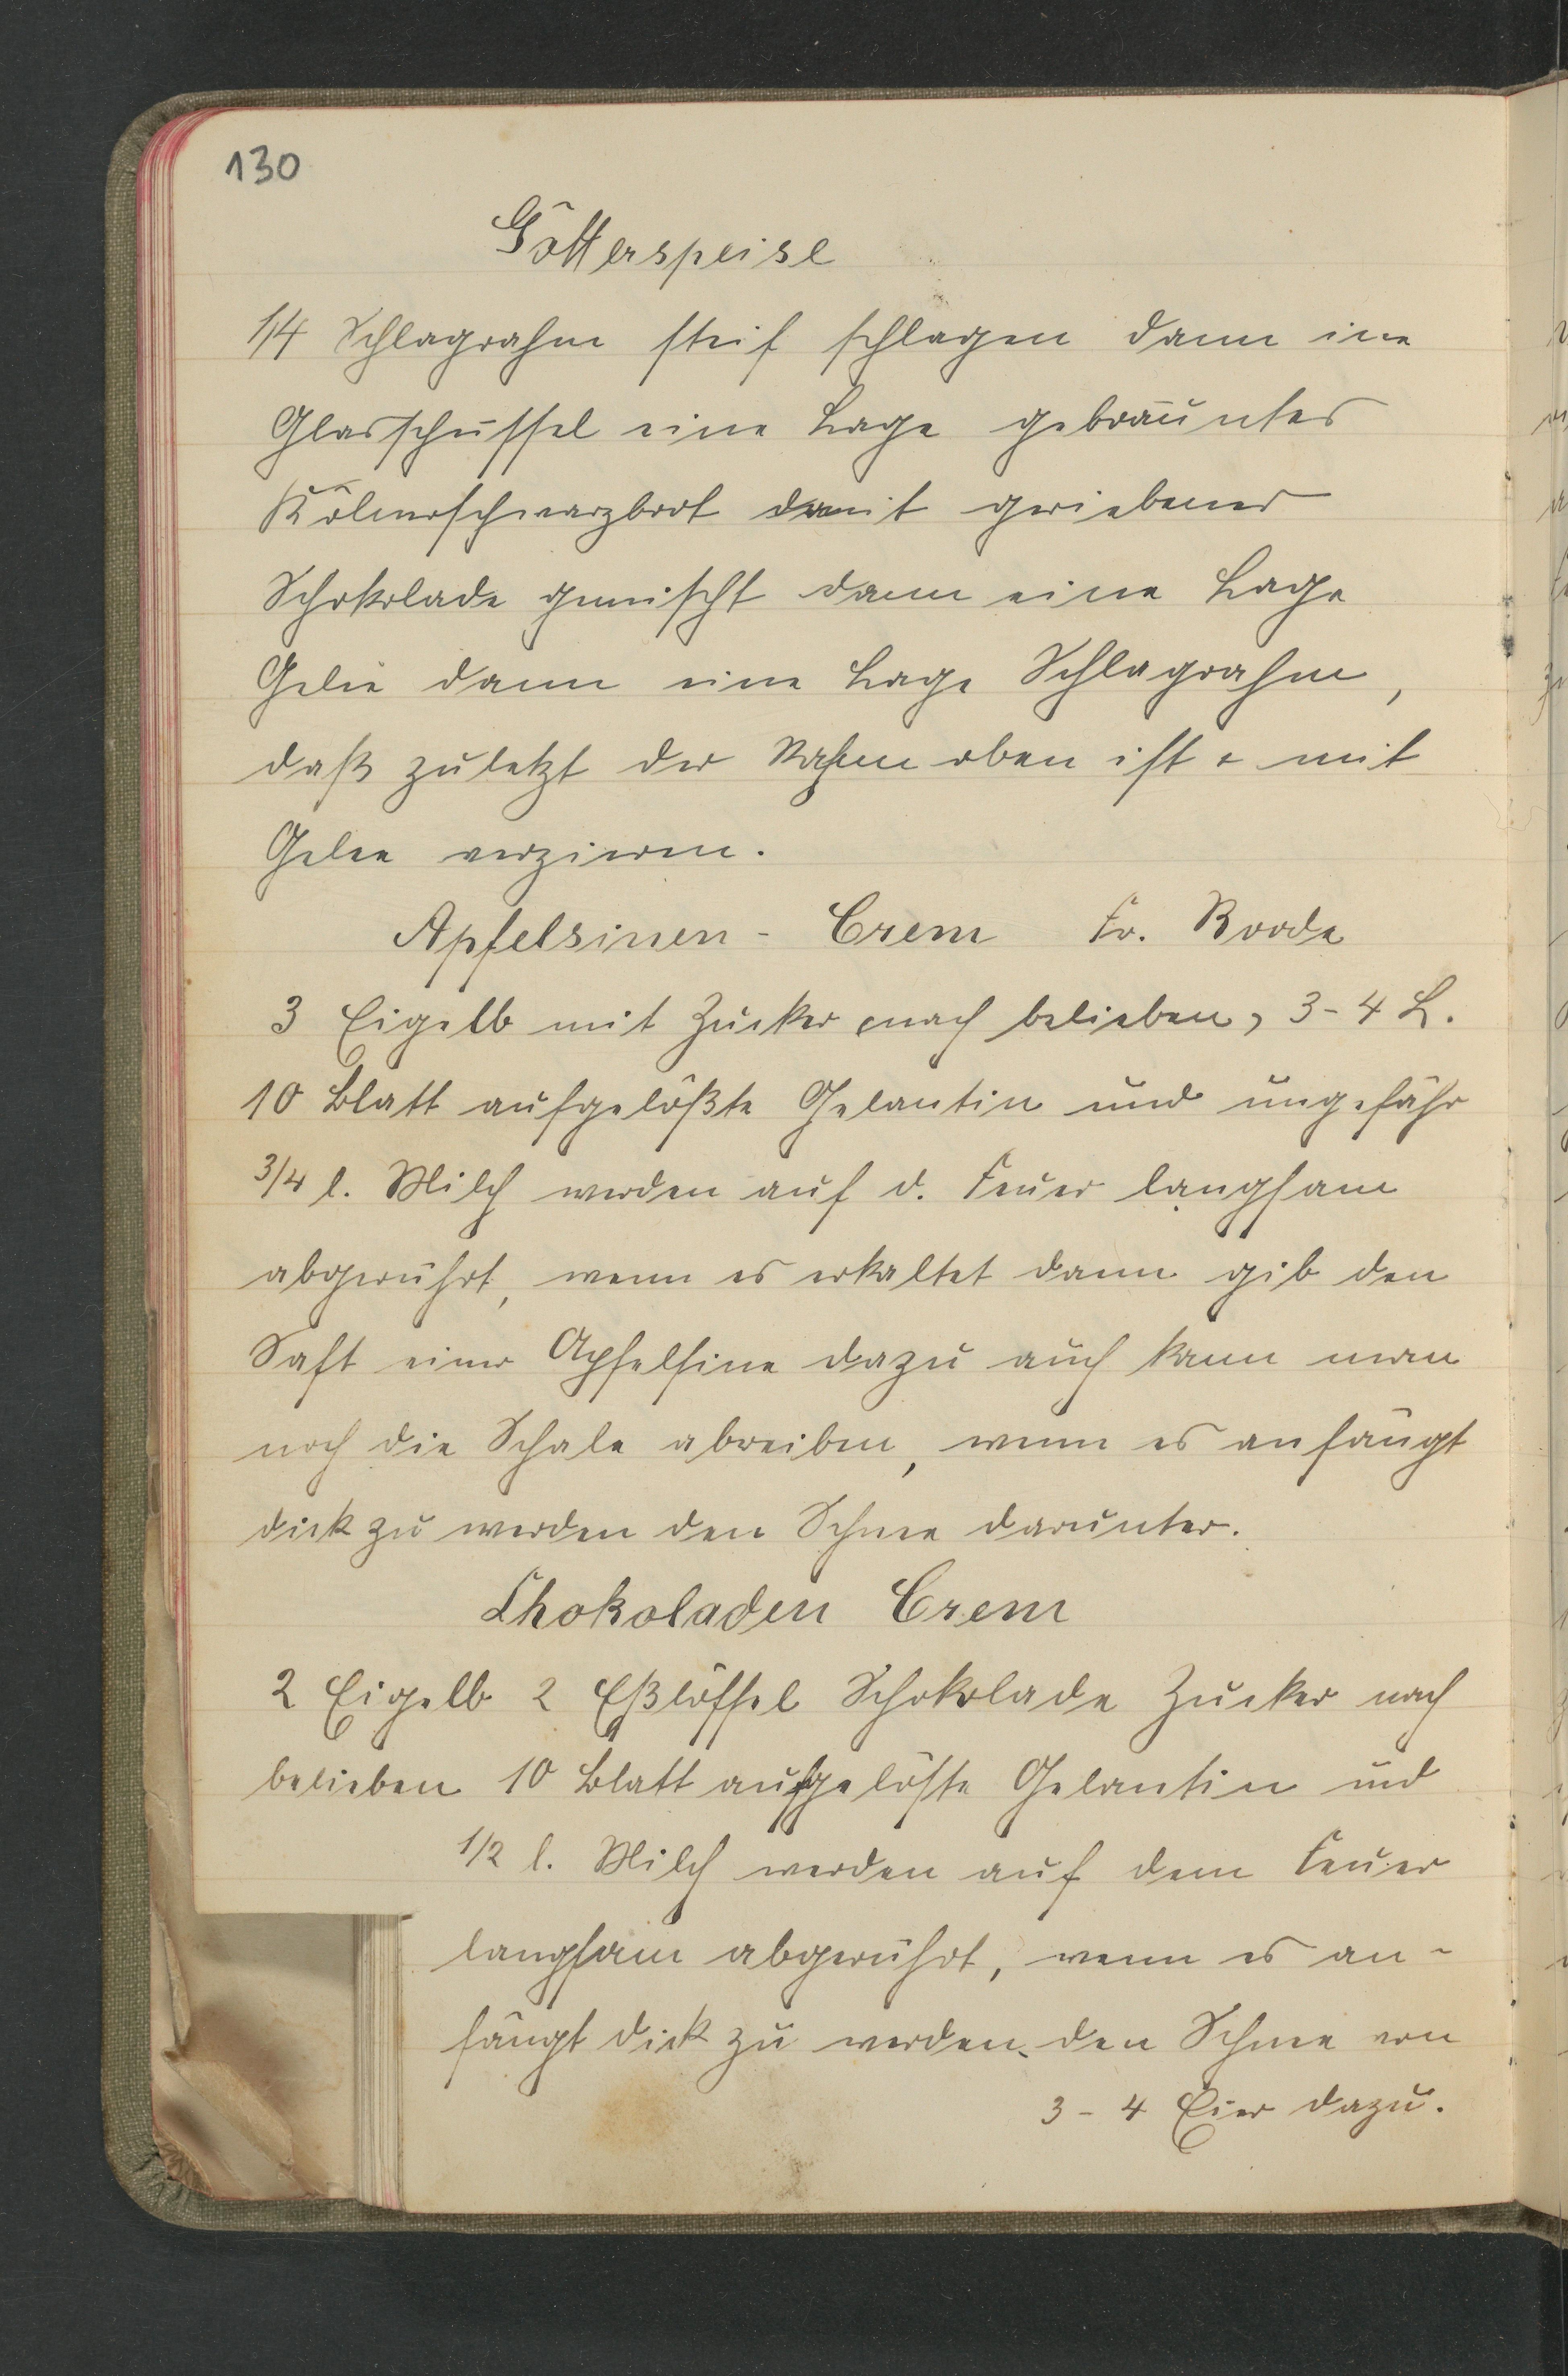 130
Götterspeise
1/4 Schlagrahm steif schlagen dann ine
Glasschüssel eine Lage gebräuntes
Kölnerschwarzbrot damit geriebener
Schokolade gemischt dann eine Lage
Gelee dann eine Lage Schlagrahm,
daß zuletzt der Rahm oben ist & mit
Gelee verzieren.
Apfelsinen - Crem Fr. Roode
3 Eigelb mit Zucker nach belieben, 3-4 L.
10 Blatt aufgelößte Gelantin und ungefähr
3/4 l. Milch werden auf d. Feuer langsam
abgerührt, wenn es erkaltet dann gib den
Saft einer Apfelsine dazu auch kann man
noch die Schale abreiben, wenn es anfängt
dick zu werden den Schnee darunter.
Chokoladen Crem
2 Eigelb 2 Eßlöffel Schokolade Zucker nach
belieben 10 Blatt aufgelöste Gelantin und
1/2 l. Milch werden auf dem Feuer
langsam abgerührt, wenn es an-
fängt dick zu werden den Schnee von
3 - 4 Eier dazu.